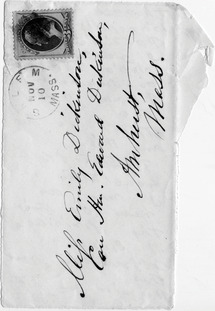 Miss Emily Dickinson,
Care Hon. Edward Dickinson,
Amherst
Mass.
NOV
10
MASS